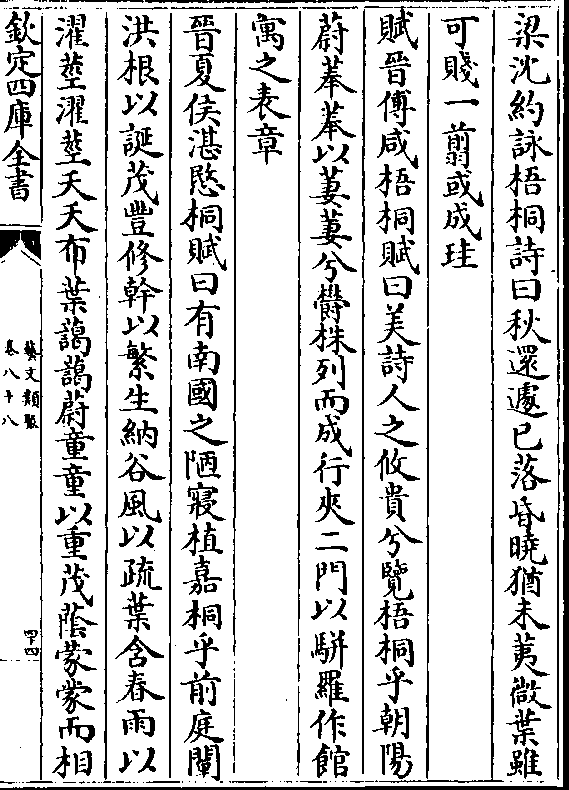 梁沈約詠梧桐詩曰秋還遽已落昏曉猶未荑微葉雖
可賤一翦或成珪
賦晉傅咸梧桐賦曰美詩人之攸貴兮覽梧桐乎朝陽
蔚菶菶以萋萋兮欝株列而成行夾二門以騈羅作館
寓之表章
晉夏侯湛愍桐賦曰有南國之陋寢植嘉桐乎前庭闡
洪根以誕茂豐修幹以繁生納谷風以疏葉含春雨以
濯莖濯莖夭夭布葉藹藹蔚童童以重茂蔭蒙蒙而相
欽定四庫全書
藝文類聚
卷八十八
四十四